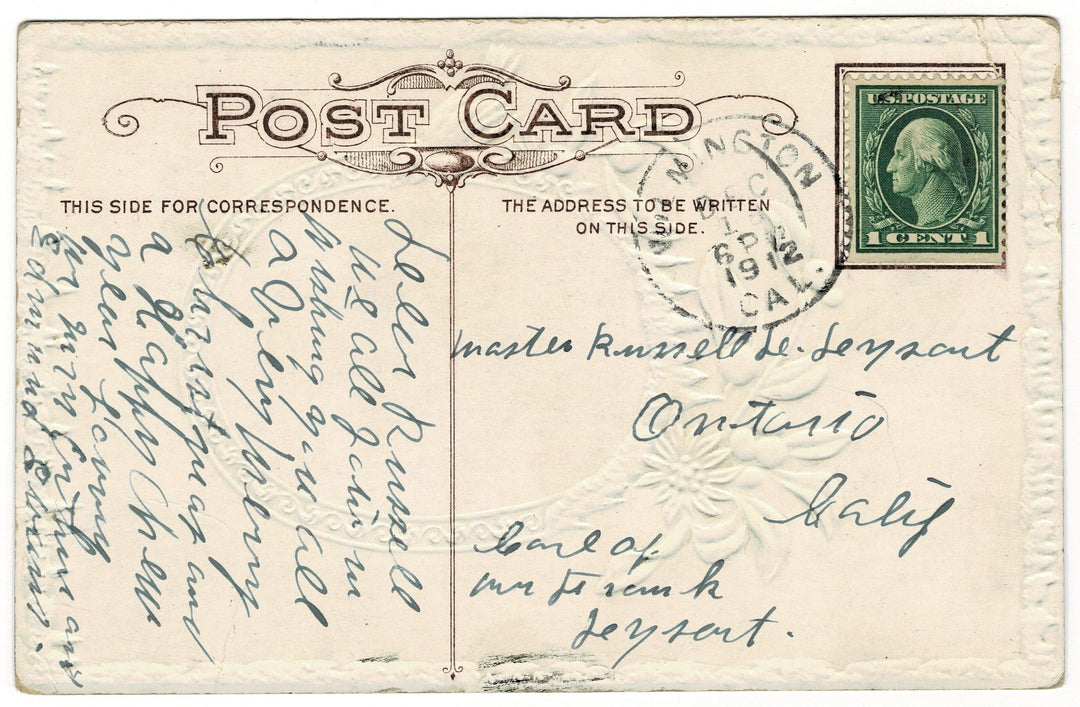 POST CARD
THIS SIDE FOR CORRESPONDENCE.
THE ADDRESS TO BE WRITTEN
ON THIS SIDE.
MINGTON
DEC
6 P
1912
CAL.
U.S. POSTAGE
1 CENT 1
Dear Russell
We all join in
wishing you all
a Very Merry
Christmas and
a Happy New
year
Edmund
Master Russell
Ontario
Calif
Care of
Mr Frank